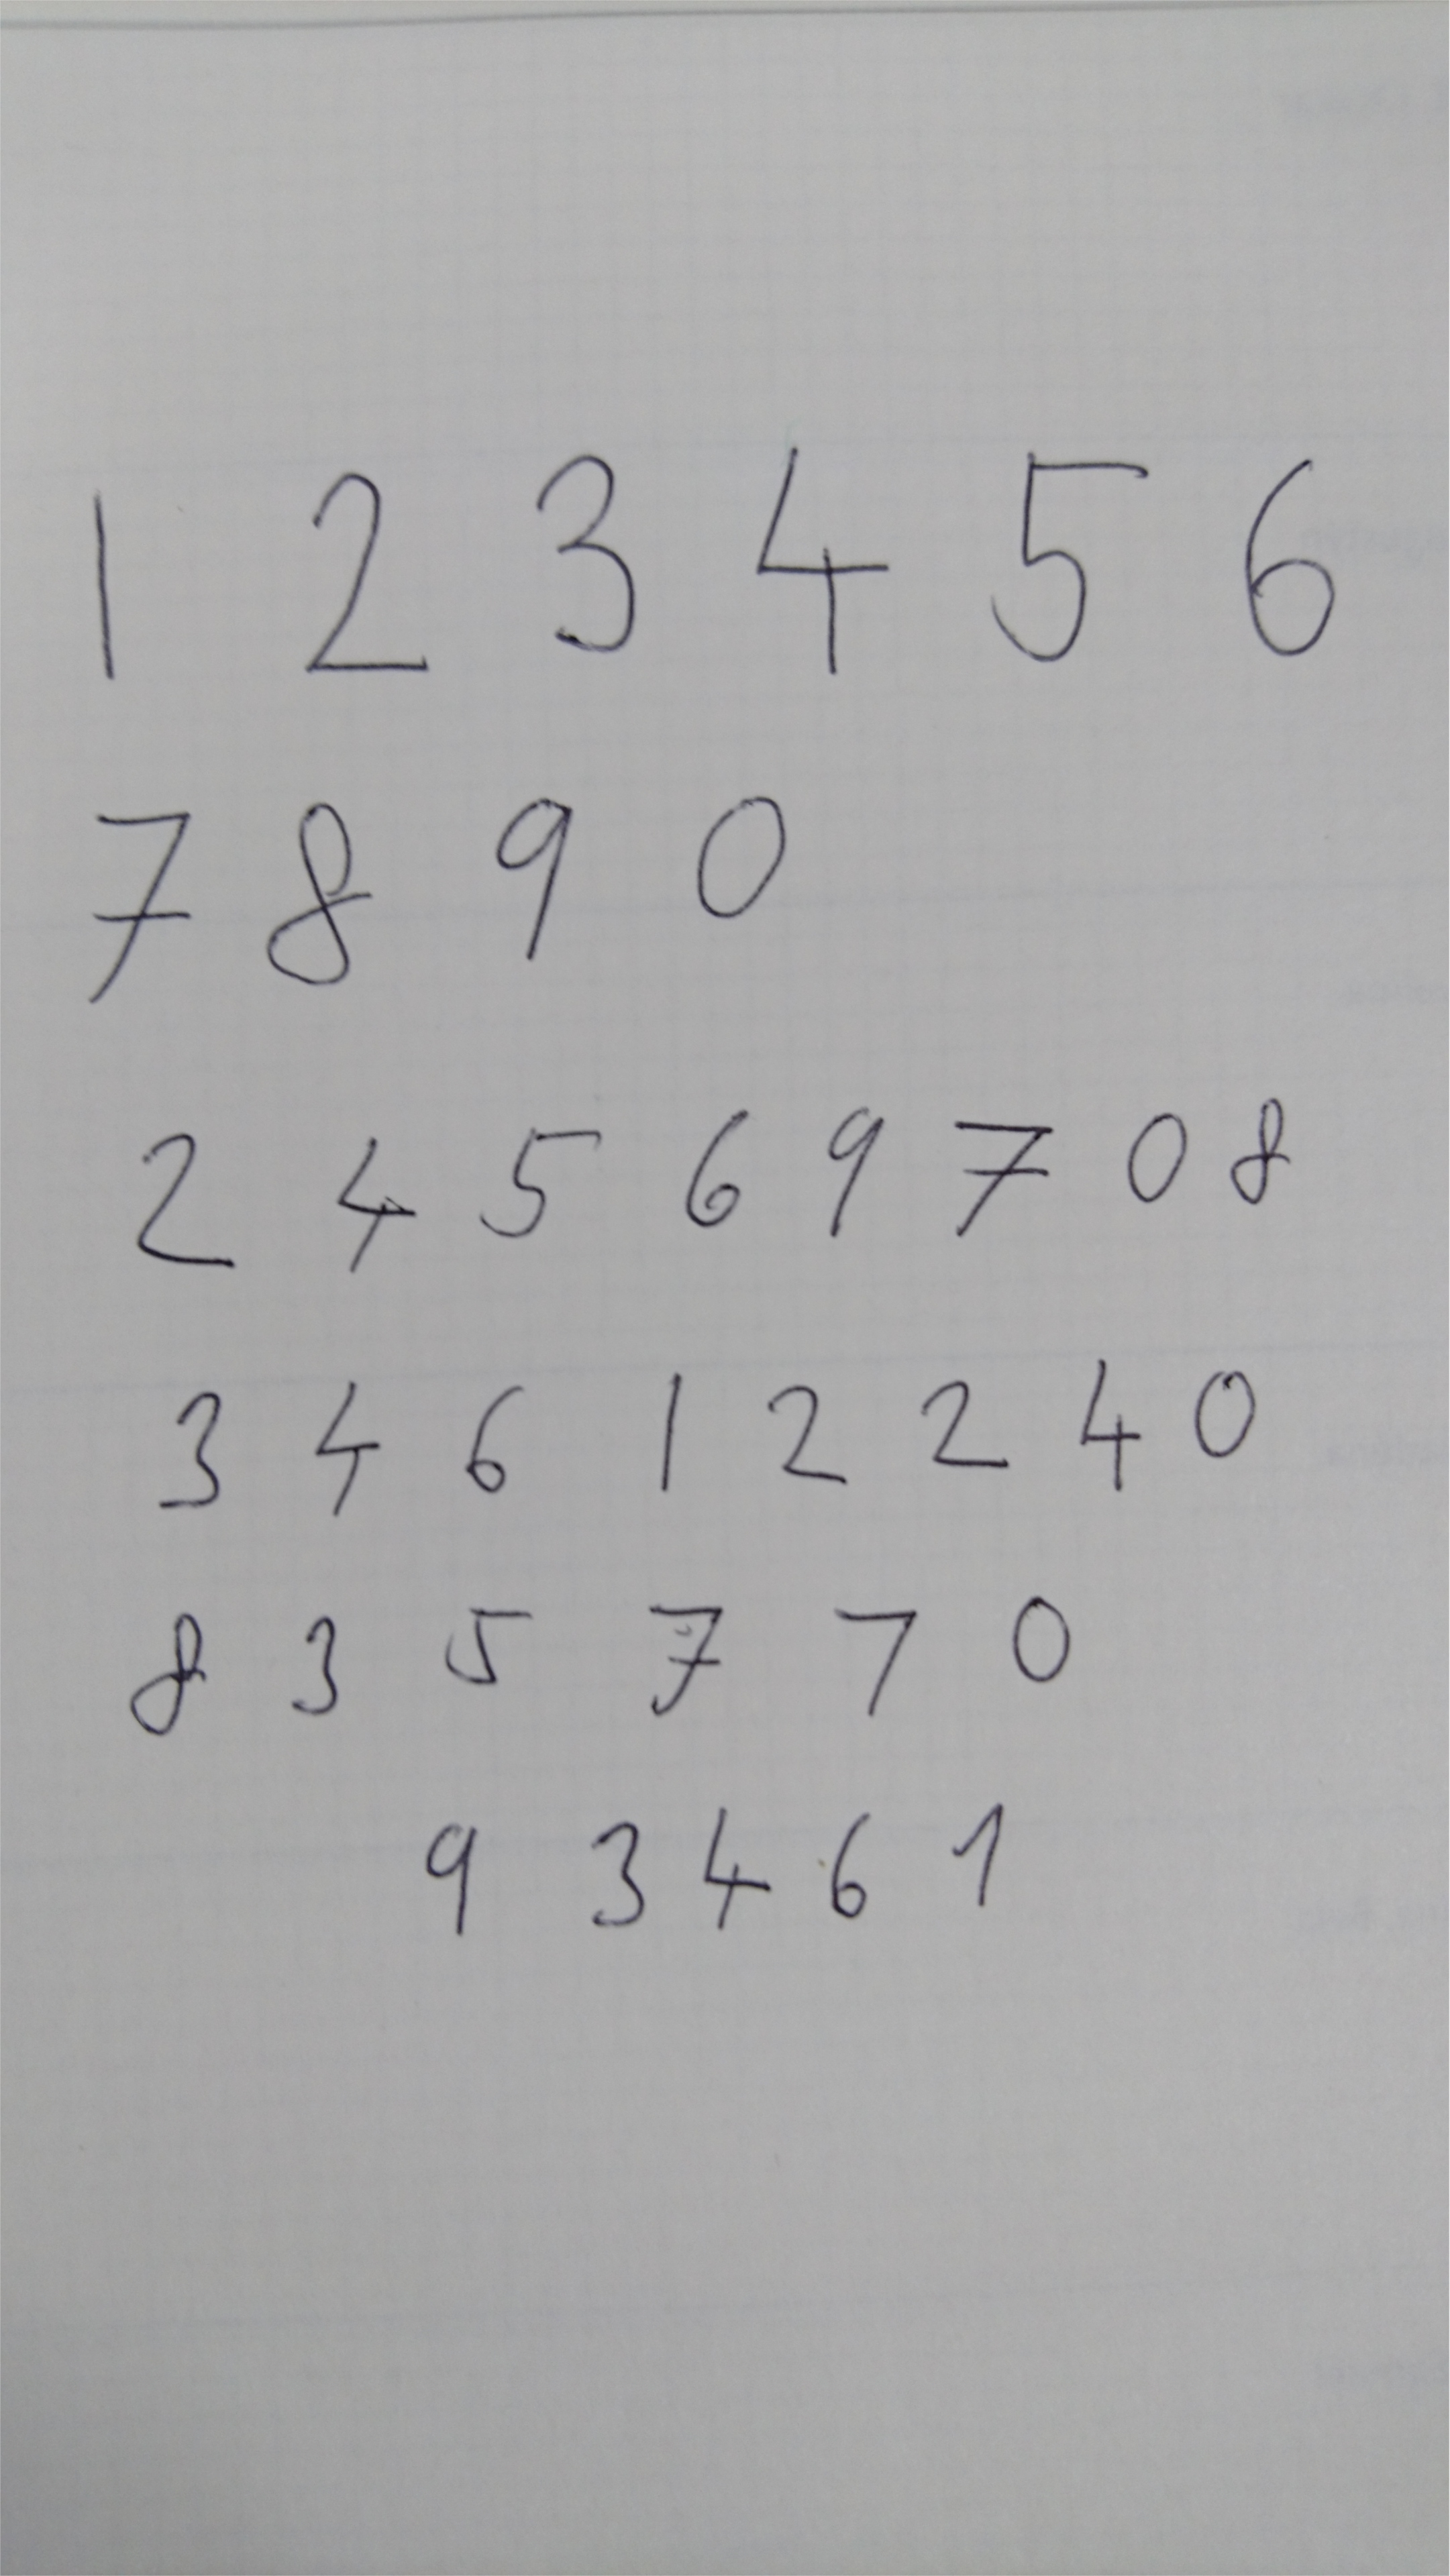 1 2 3 4 5 6
7 8 9 0
2 4 5 6 9 7 0 8
3 4 6 1 2 2 4 0
8 3 5 7 7 0
9 3 4 6 1